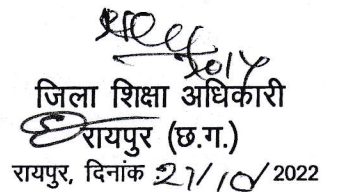 जिला शिक्षा अधिकारी
रायपुर (छ.ग.)
रायपुर, दिनांक :27/10/2022